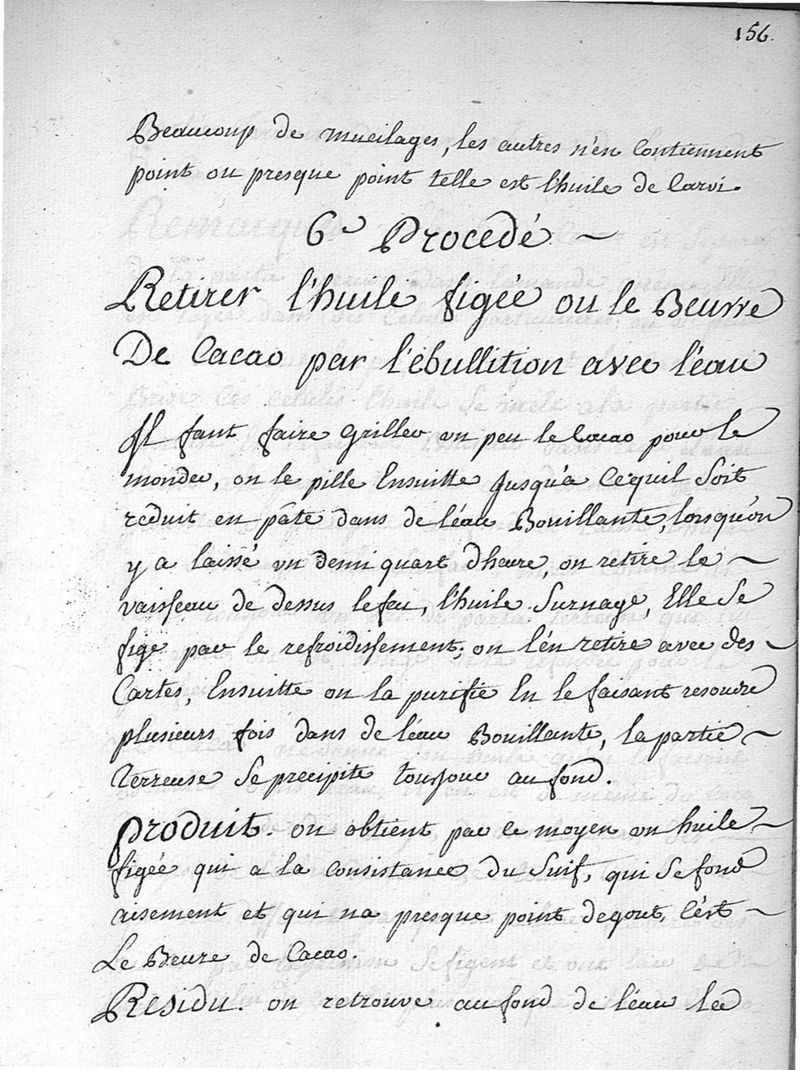 156.
Beaucoup de mucilages, les autres n'en Contiennent
point ou presque point telle est l'huile de Carvi.
6e Procedé ~
Retirer l'huile figée ou le Beurre
De Cacao par l'ébullition avec l'éau
Il faut faire Griller un peu le Cacao pour le
monder, on le pille Ensuitte Jusqu'a Cequil Soit
reduit en pâte dans de l'éau Bouillante, lorsqu'on
y a laissé un demi quart d'heure, on retire le ~
vaisseau de dessus le feu, l'huile Surnage, Elle Se
fige par le refroidissement. on l'en retire avec des ~
Cartes, Ensuitte on la purifie En le faisant resoudre
plusieurs fois dans de l'éau Bouillante, la partie ~
Terreuse Se precipite toujour au fond.
Produit. on obtient par ce moyen un huile ~
figée qui a la Consistance du Suif, qui Se fond
aisement et qui na presque point degout, C'ést ~
Le Beure de Cacao.
Residu. on retrouve au fond de l'éau les